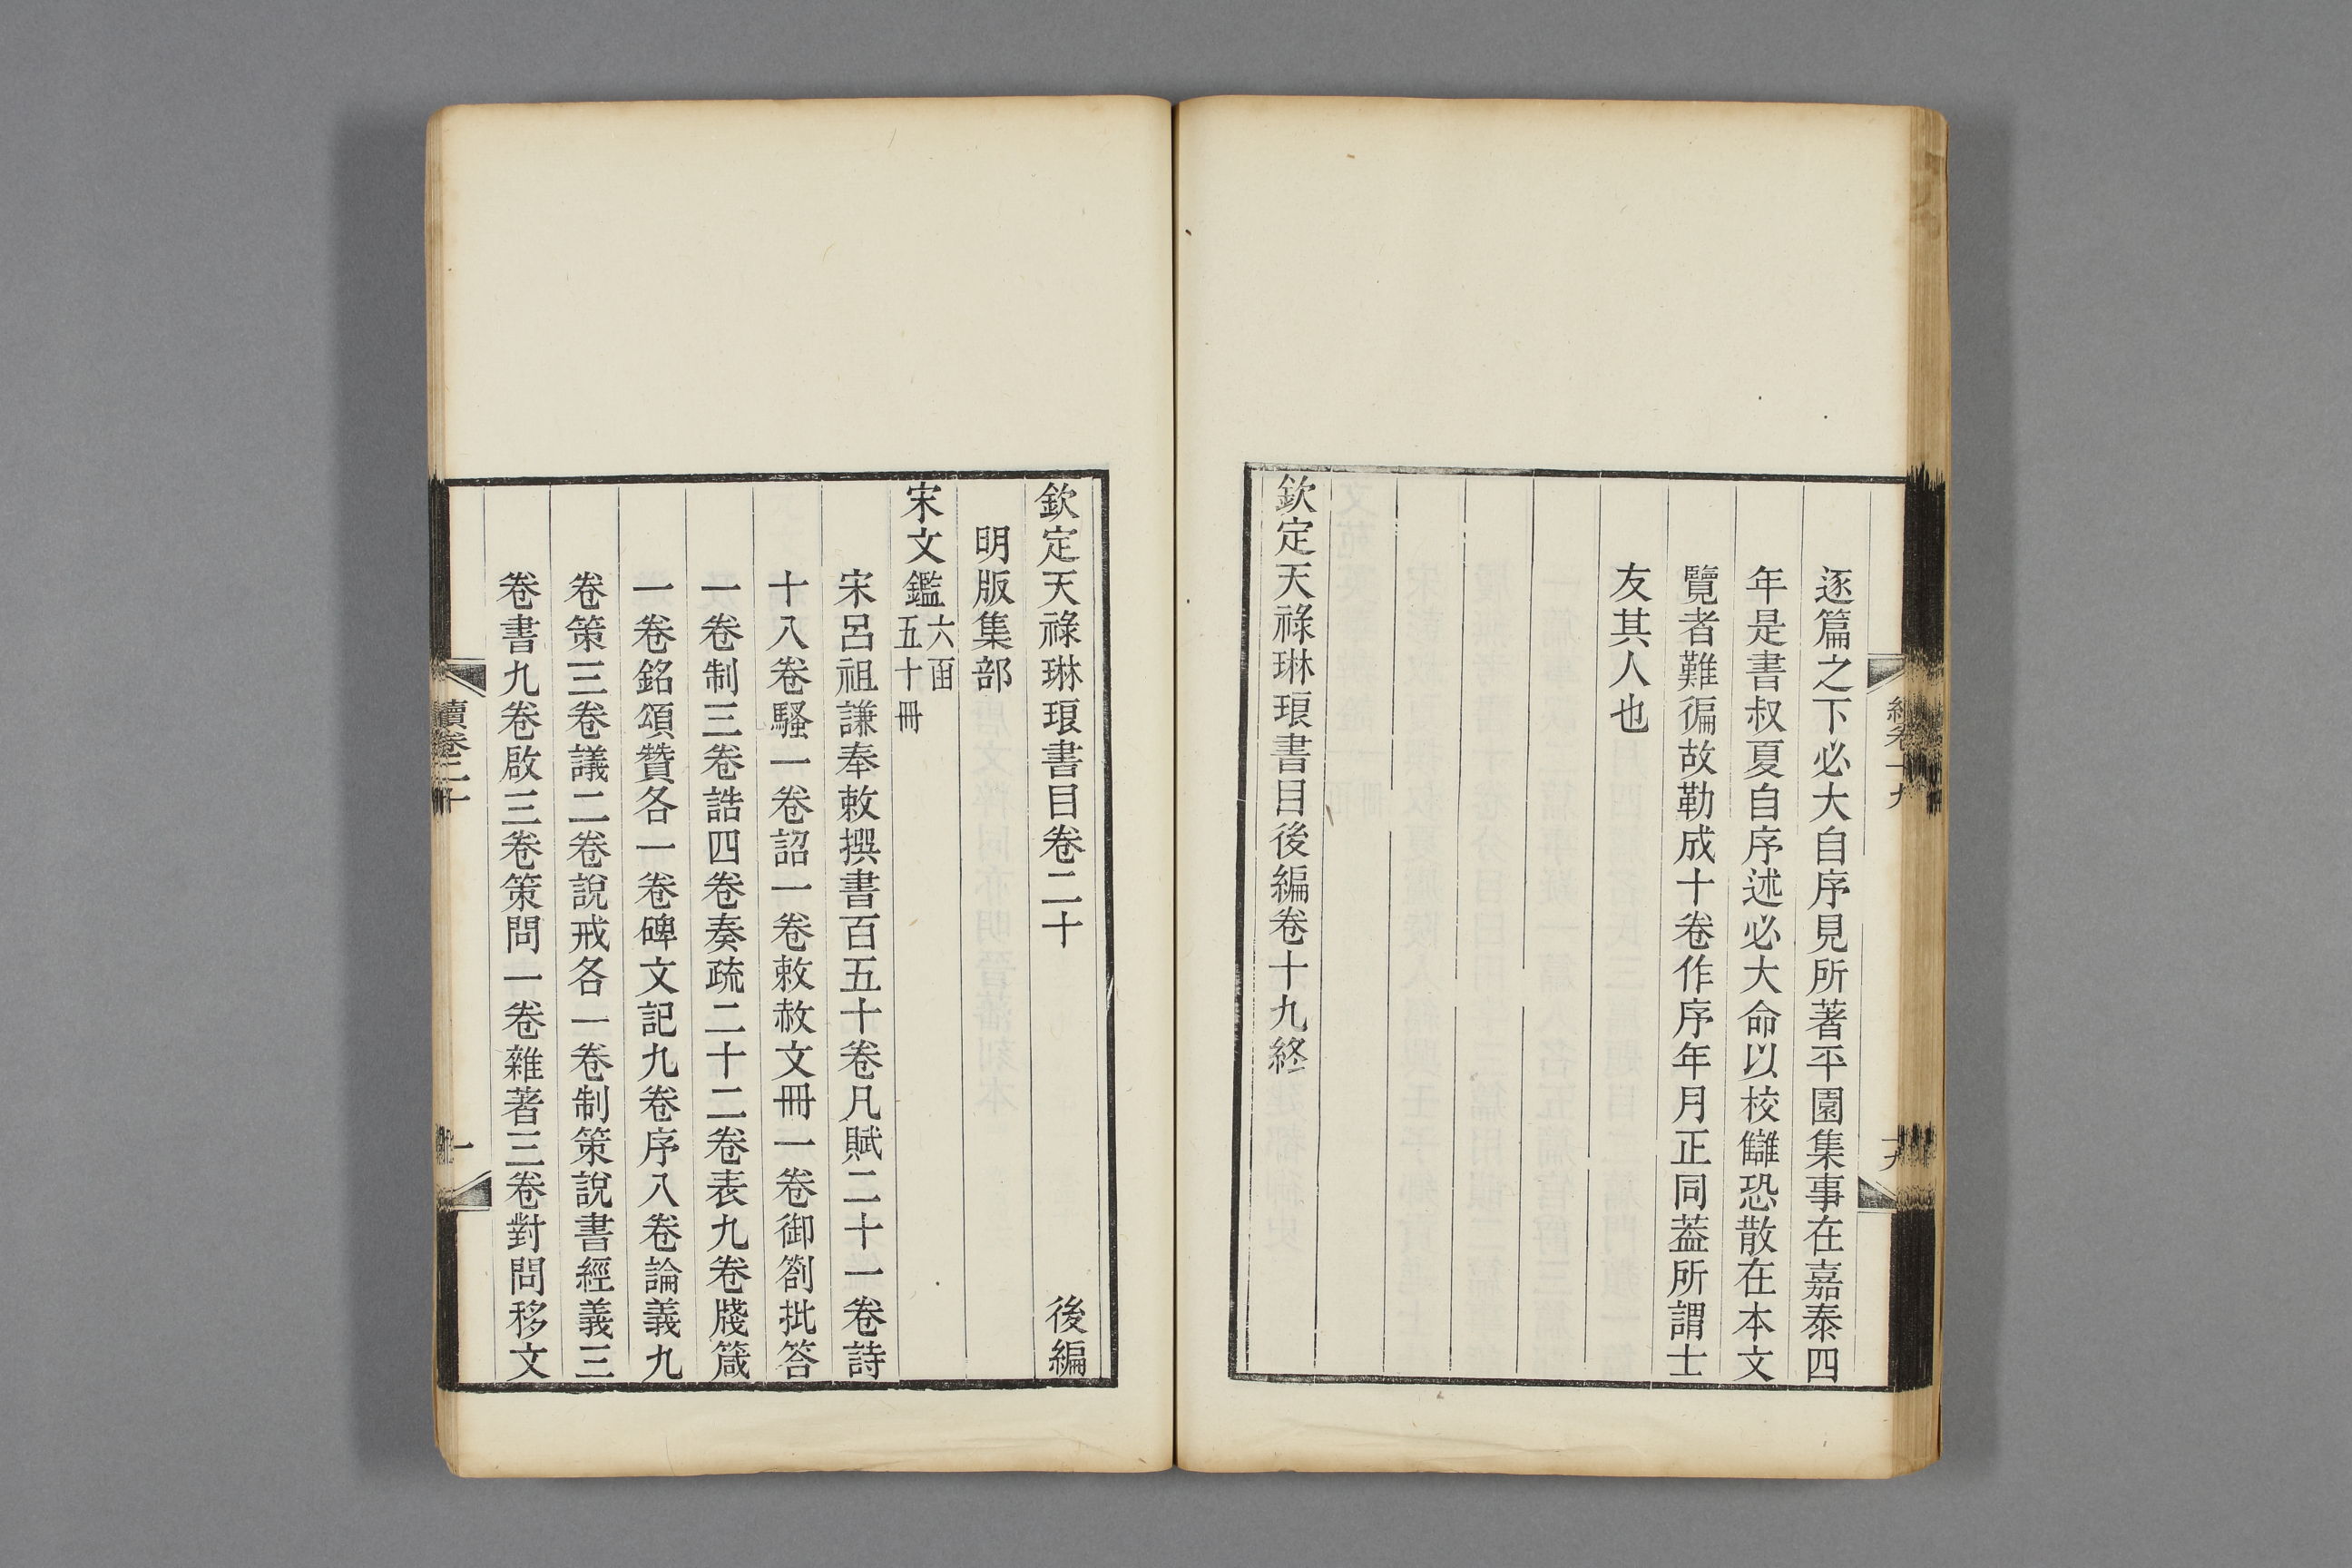 逐篇之下必大自序見所著平園集事在嘉泰四
年是書叔夏自序述必大命以校讎恐散在本文
覽者難徧故勒成十卷作序年月正同蓋所謂士
友其人也
欽定天祿琳琅書目後編卷十九終
欽定天祿琳琅書目卷二十 後編
明版集部
宋文鑑六函五十冊
宋呂祖謙奉敕撰書百五十卷凡賦二十一卷詩
十八卷騷一卷詔一卷敕赦文冊一卷御劄批答
一卷制三卷誥四卷奏疏二十二卷表九卷牋箴
一卷銘頌贊各一卷碑文記九卷序八卷論義九
卷策三卷議二卷說戒各一卷制策說書經義三
卷書九卷啟三卷策問一卷雜著三卷對問移文
續卷二十
一